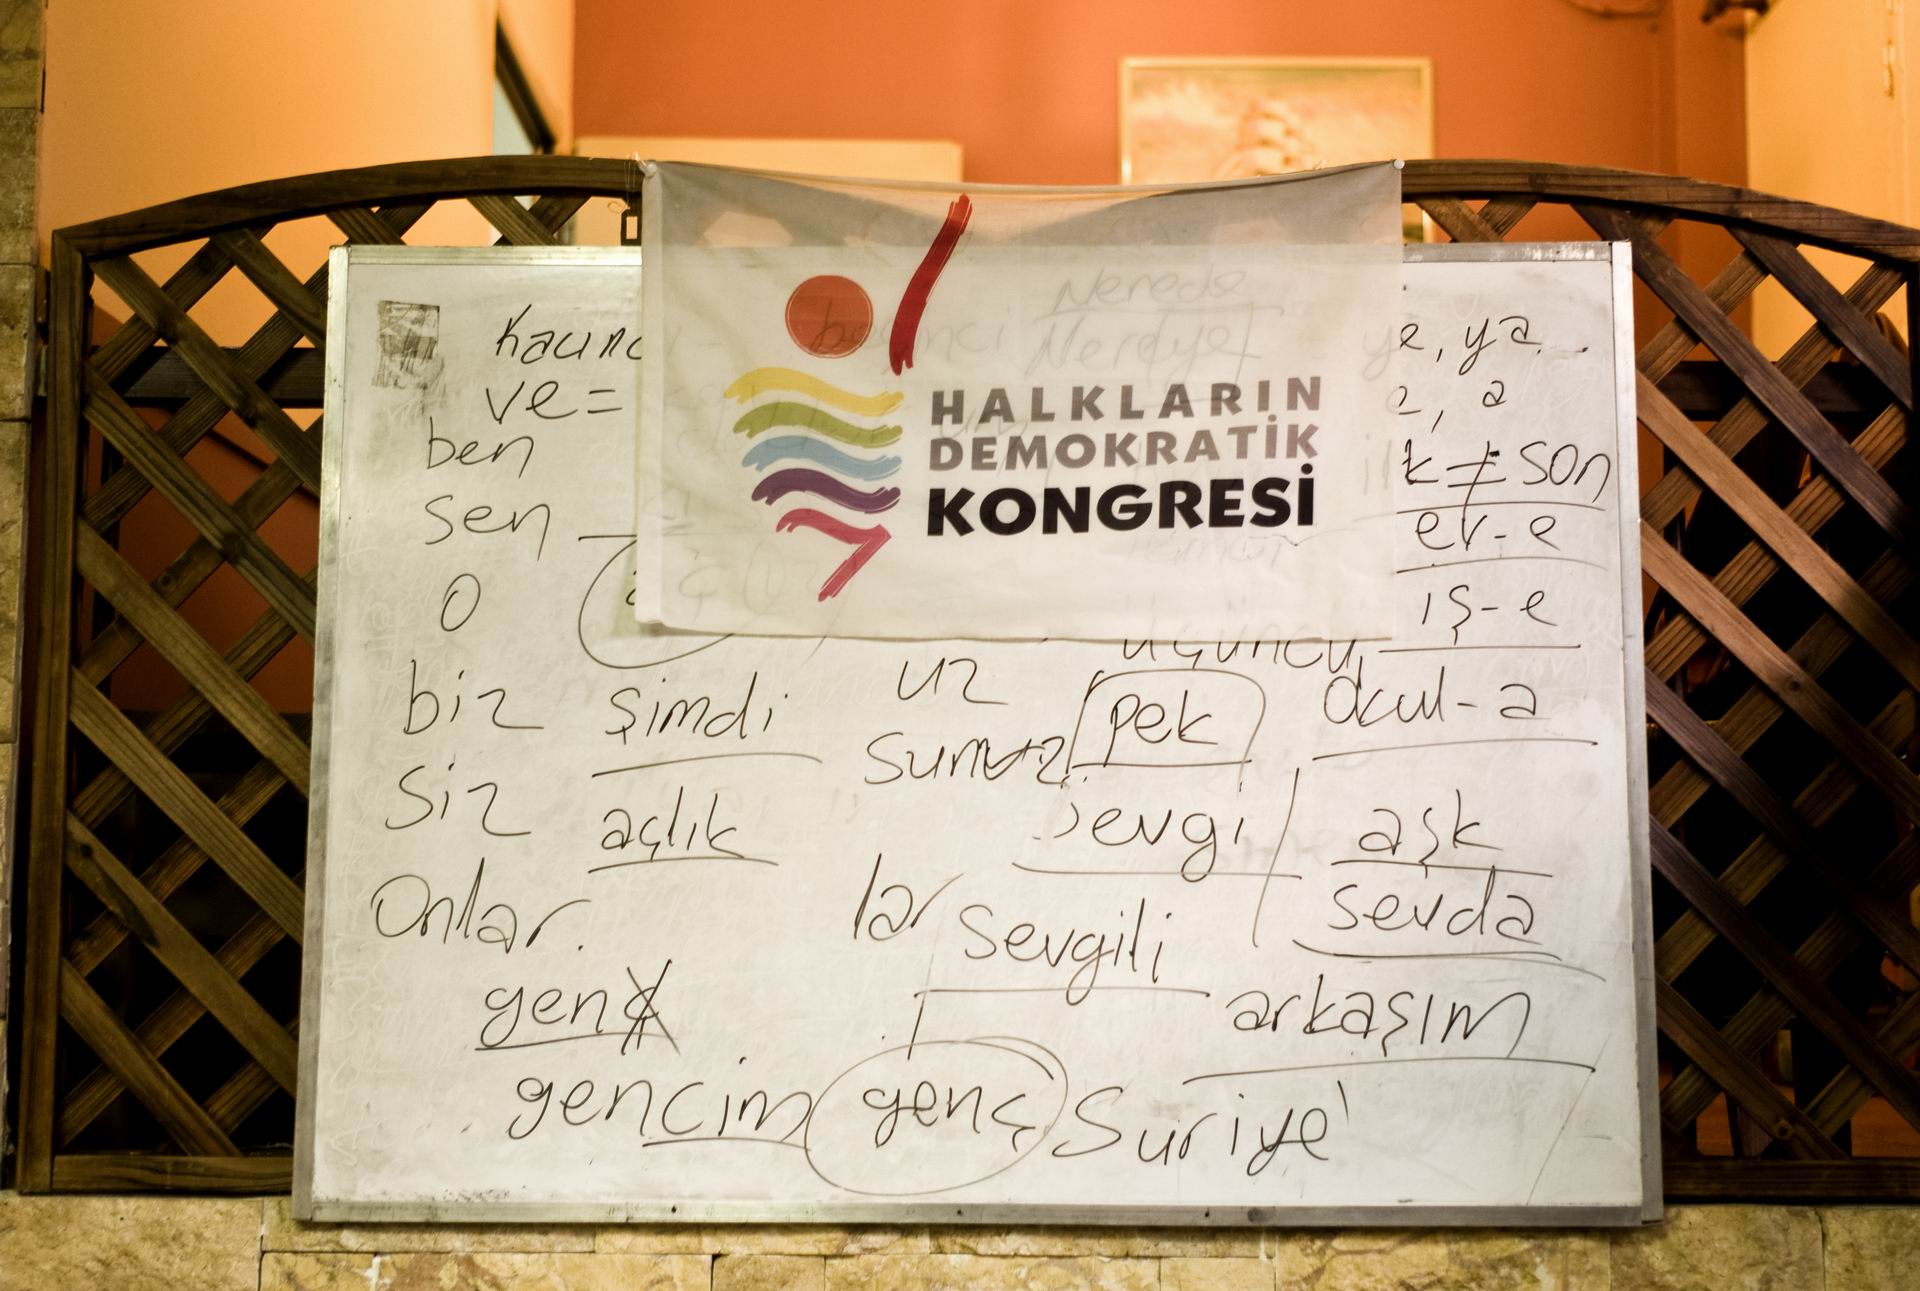 HALKLARIN
DEMOKRATİK
KONGRESİ
Nerede
ye, ya
ve =
e, a
ben
k ≠ son
sen
ev-e
o
iş-e
üçüncü
biz şimdi uz pek okul-a
siz açlık sunuz sevgi aşk
onlar. lar sevgili sevda
genç arkaşım
gencim genç Suriye'